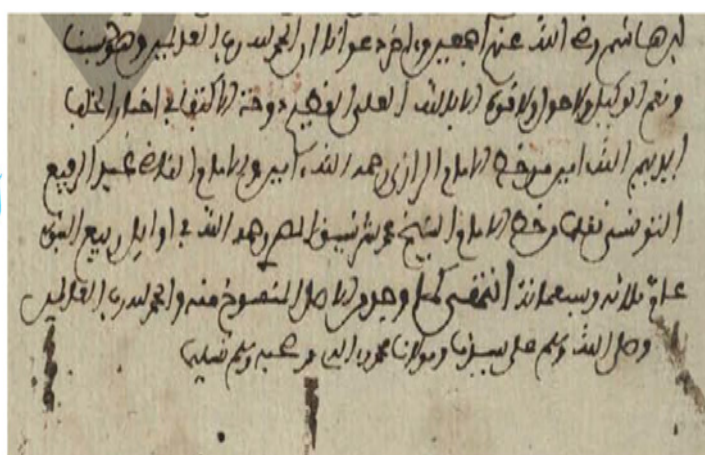 ابن هاشم رضي الله عنهم أجمعين وءاخر دعوانا ان الحمد لله رب العالمين وهو حسبنا
ونعم الوكيل ولا حول ولا قوة الا بالله العلي العظيم دوحة الاكتفا في اخبار الخلفا
الله امين من خط الامام الرازي رحمه الله امين والامام القاضي الرفيع
التونسي نقلها من خط الامام الشيخ رحمه الله في اوايل ربيع النبوي
عام ثلاثة وسبعمائة انتهى كما وجد في الاصل المنسوخ منه والحمد لله رب العالمين
وصلى الله وسلم على سيدنا ومولانا محمد وءاله وصحبه وسلم تسليما